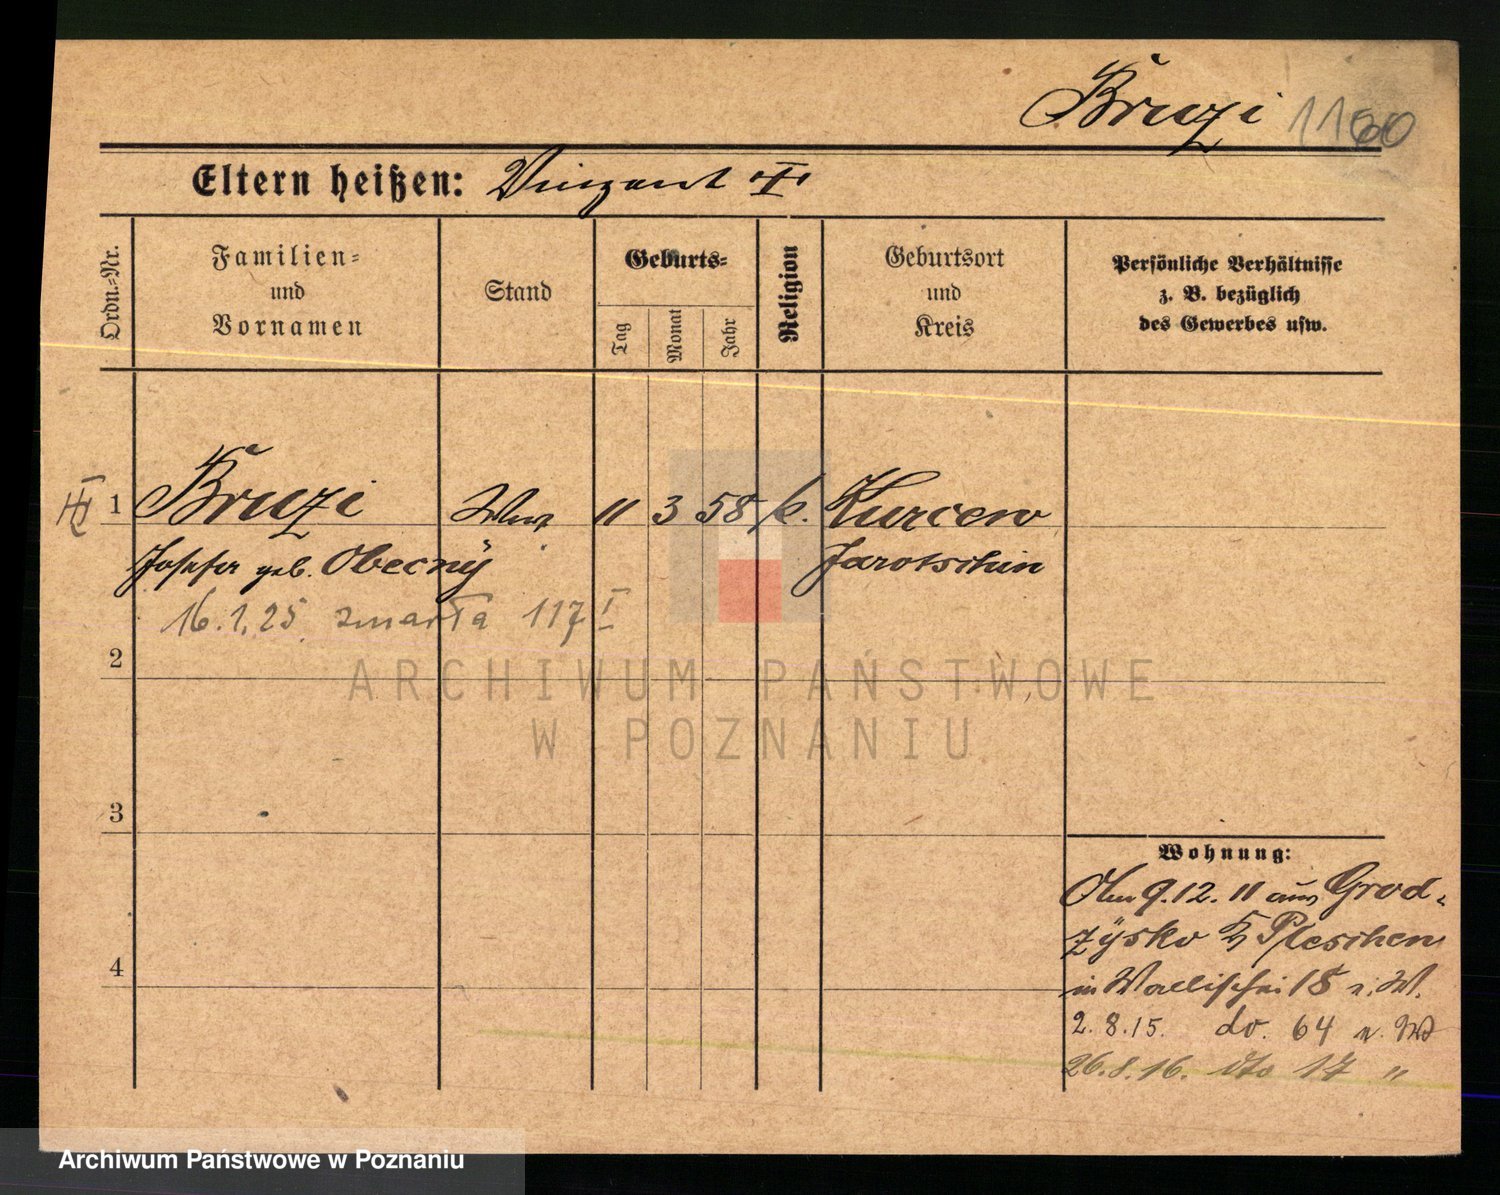 Bruzi 1160
Eltern heißen: Vinzent
Ordn.-Nr.
Familien-
und
Vornamen
Stand
Geburts-
Tag
Monat
Jahr
Religion
Geburtsort
und
Kreis
Persönliche Verhältnisse
z. B. bezüglich
des Gewerbes usw.
1 Bruzi Ww 11 3 58 k. Kurcew
Josefa geb. Obecny Jarotschin
16.1.25 zmarła 117 I
2
ARCHIWUM PAŃSTWOWE
W POZNANIU
3
Wohnung:
9.12.11 aus Grod-
zysko Pleschen
4
in Wallischei 18
2.8.15. do. 64
26.8.16. dto 17 "
Archiwum Państwowe w Poznaniu